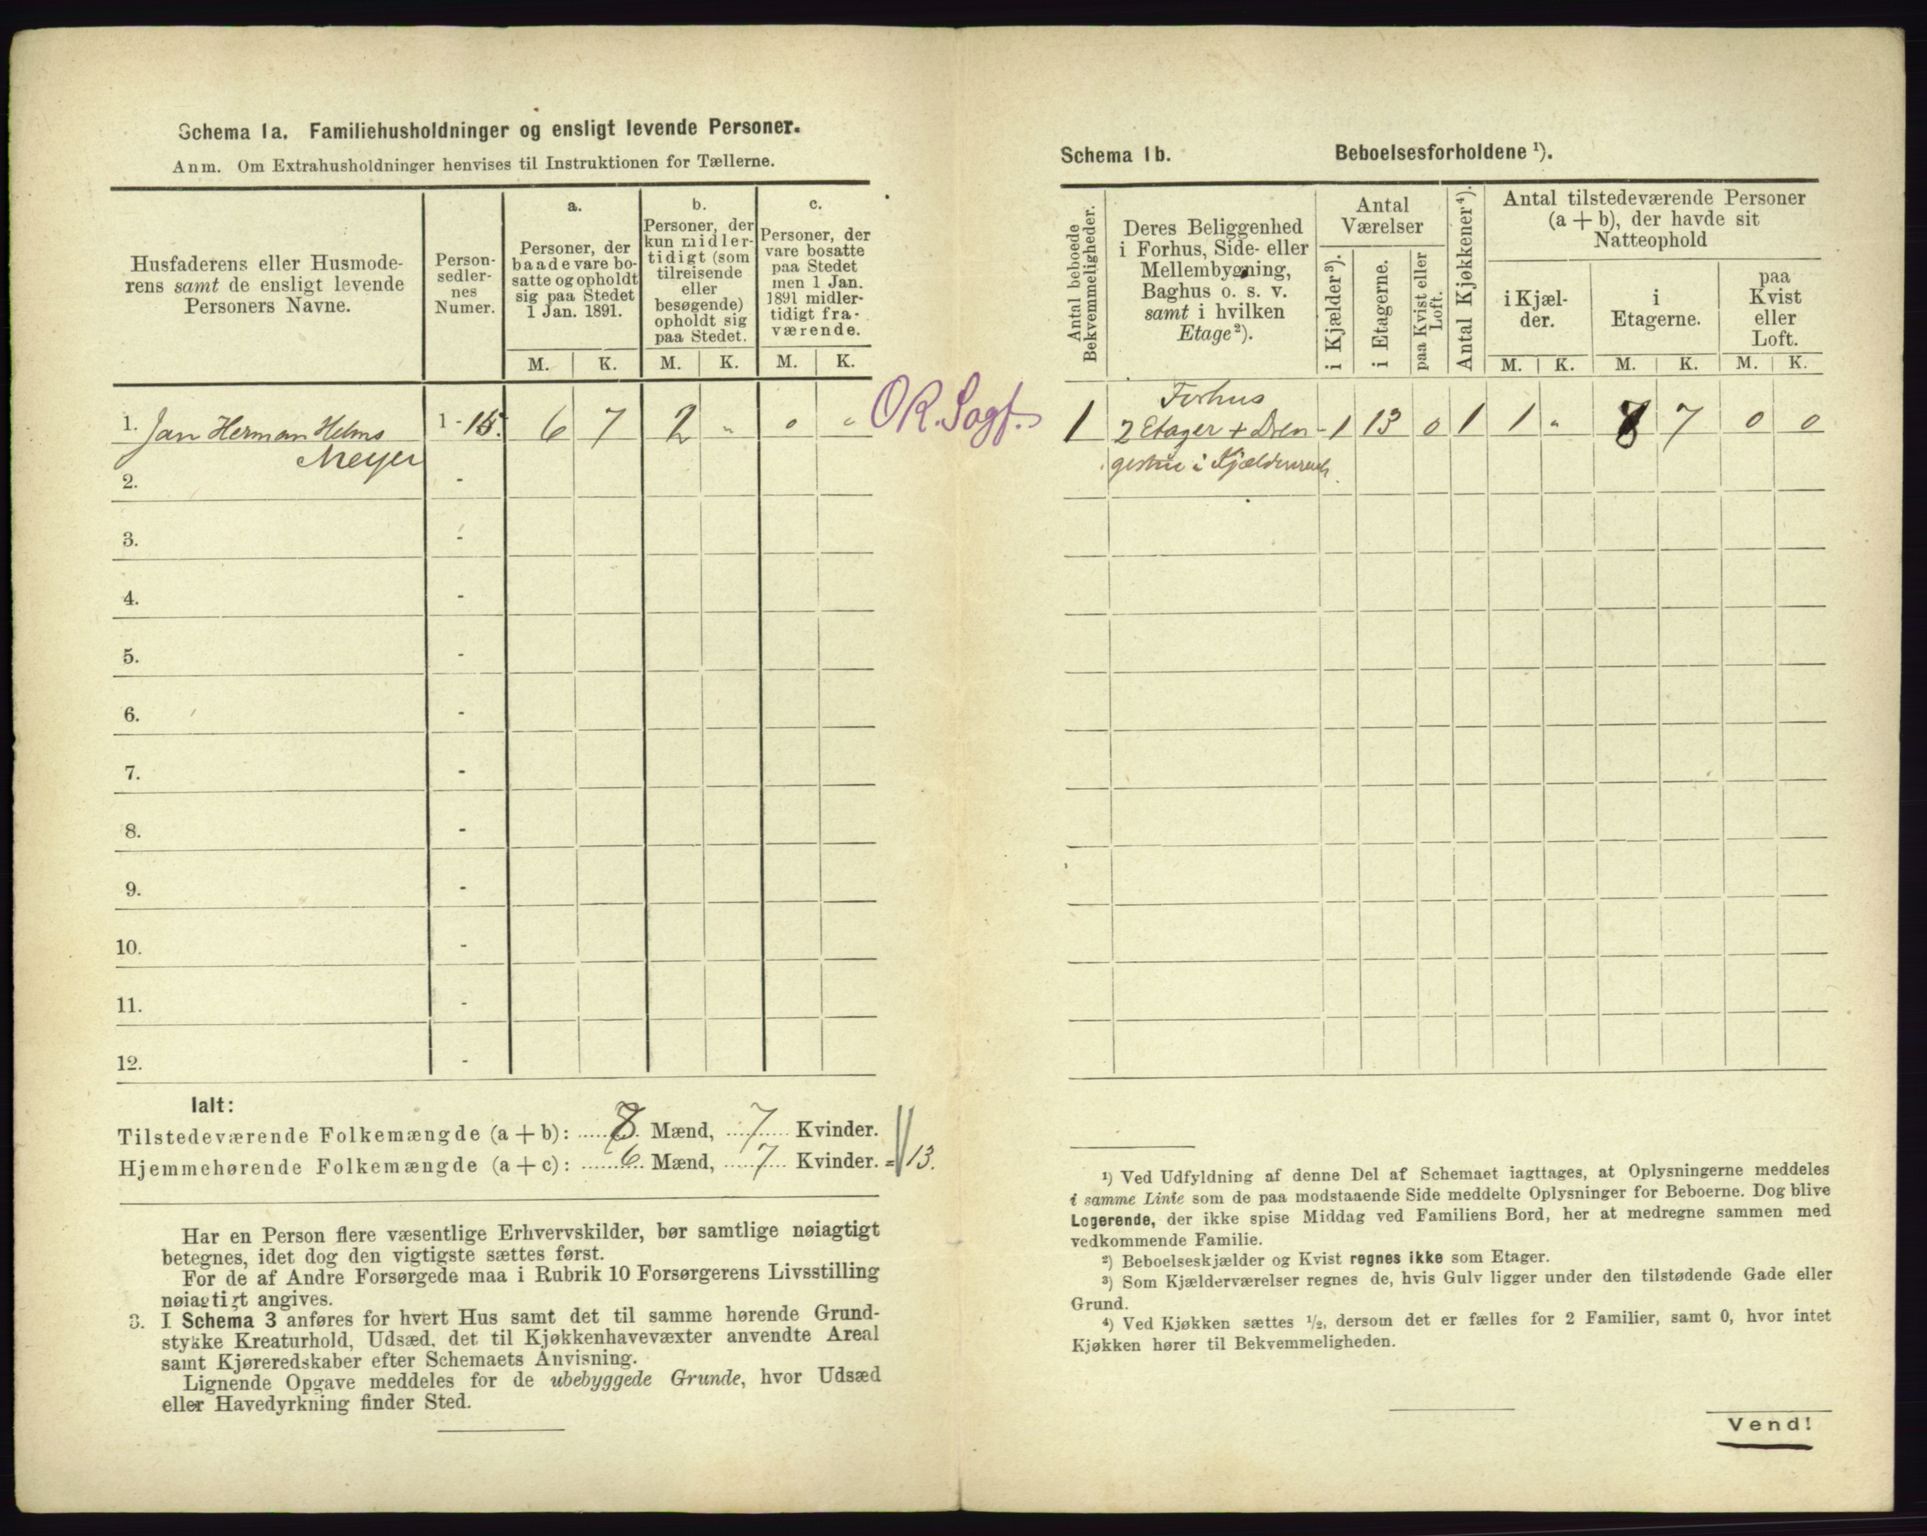 Schema 1a. Familiehusholdninger og ensligt levende Personer.
Anm. Om Extrahusholdninger henvises til Instruktionen for Tællerne.
Husfaderens eller Husmode-
rens samt de ensligt levende
Personers Navne.
Person-
sedler-
nes
Numer.
a.
Personer, der
baade vare bo-
satte og opholdt
sig paa Stedet
1 Jan. 1891.
b.
Personer, der
kun midler-
tidigt (som
tilreisende
eller
besøgende)
opholdt sig
paa Stedet.
c.
Personer, der
vare bosatte
paa Stedet
men 1 Jan.
1891 midler-
tidigt fra-
værende.
M. K. M. K. M. K.
1. Jan Herman Helms 1 - 15. 6 7 2 „ 0 0
Meyer
2. -
3. -
4. -
5. -
6. -
7. -
8. -
9. -
10. -
11. -
12. -
Ialt:
Tilstedeværende Folkemængde (a + b): 8 Mænd, 7 Kvinder.
Hjemmehørende Folkemængde (a + c): 6 Mænd, 7 Kvinder. = 13.
Har en Person flere væsentlige Erhvervskilder, bør samtlige nøiagtigt
betegnes, idet dog den vigtigste sættes først.
For de af Andre Forsørgede maa i Rubrik 10 Forsørgerens Livsstilling
nøiagtigt angives.
3. I Schema 3 anføres for hvert Hus samt det til samme hørende Grund-
stykke Kreaturhold, Udsæd, det til Kjøkkenhavevæxter anvendte Areal
samt Kjøreredskaber efter Schemaets Anvisning.
Lignende Opgave meddeles for de ubebyggede Grunde, hvor Udsæd
eller Havedyrkning finder Sted.
Schema 1b. Beboelsesforholdene ¹).
Antal beboede
Bekvemmeligheder.
Deres Beliggenhed
i Forhus, Side- eller
Mellembygning,
Baghus o. s. v.
samt i hvilken
Etage²).
Antal
Værelser
i Kjælder³).
i Etagerne.
paa Kvist eller
Loft.
Antal Kjøkkener⁴).
Antal tilstedeværende Personer
(a + b), der havde sit
Natteophold
i Kjæl-
der.
i
Etagerne.
paa
Kvist
eller
Loft.
M. K. M. K. M. K.
Forhus
1 2 Etager + Dren- 1 13 0 1 1 „ 7 0 0
¹) Ved Udfyldning af denne Del af Schemaet iagttages, at Oplysningerne meddeles
i samme Linie som de paa modstaaende Side meddelte Oplysninger for Beboerne. Dog blive
Logerende, der ikke spise Middag ved Familiens Bord, her at medregne sammen med
vedkommende Familie.
²) Beboelseskjælder og Kvist regnes ikke som Etager.
³) Som Kjælderværelser regnes de, hvis Gulv ligger under den tilstødende Gade eller
Grund.
⁴) Ved Kjøkken sættes ¹/₂, dersom det er fælles for 2 Familier, samt 0, hvor intet
Kjøkken hører til Bekvemmeligheden.
Vend!